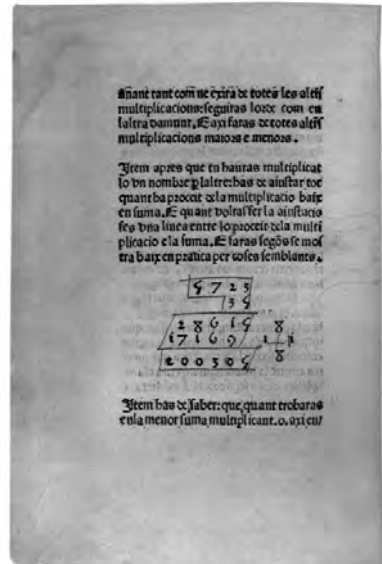 añant tant com ne exira de totes les altres
multiplicacions: seguiras lorde com en
laltra damunt. E axi faras de totes altres
multiplicacions maiors e menors.
Item apres que tu hauras multiplicat
lo vn nombre p laltre: has de aiustar tot
quant ha proceit dela multiplicatio baix
en suma. E quant volras fer la aiustatio
fes vna linea entre lo proceit dela multi
plicatio e la suma. E faras segõs se mos
tra baix en pratica per coses semblants.
5723
35
28615 8
17169 1 1
200305 8
Item has de saber: que quant trobaras
en la menor suma multiplicant .o. axi en/